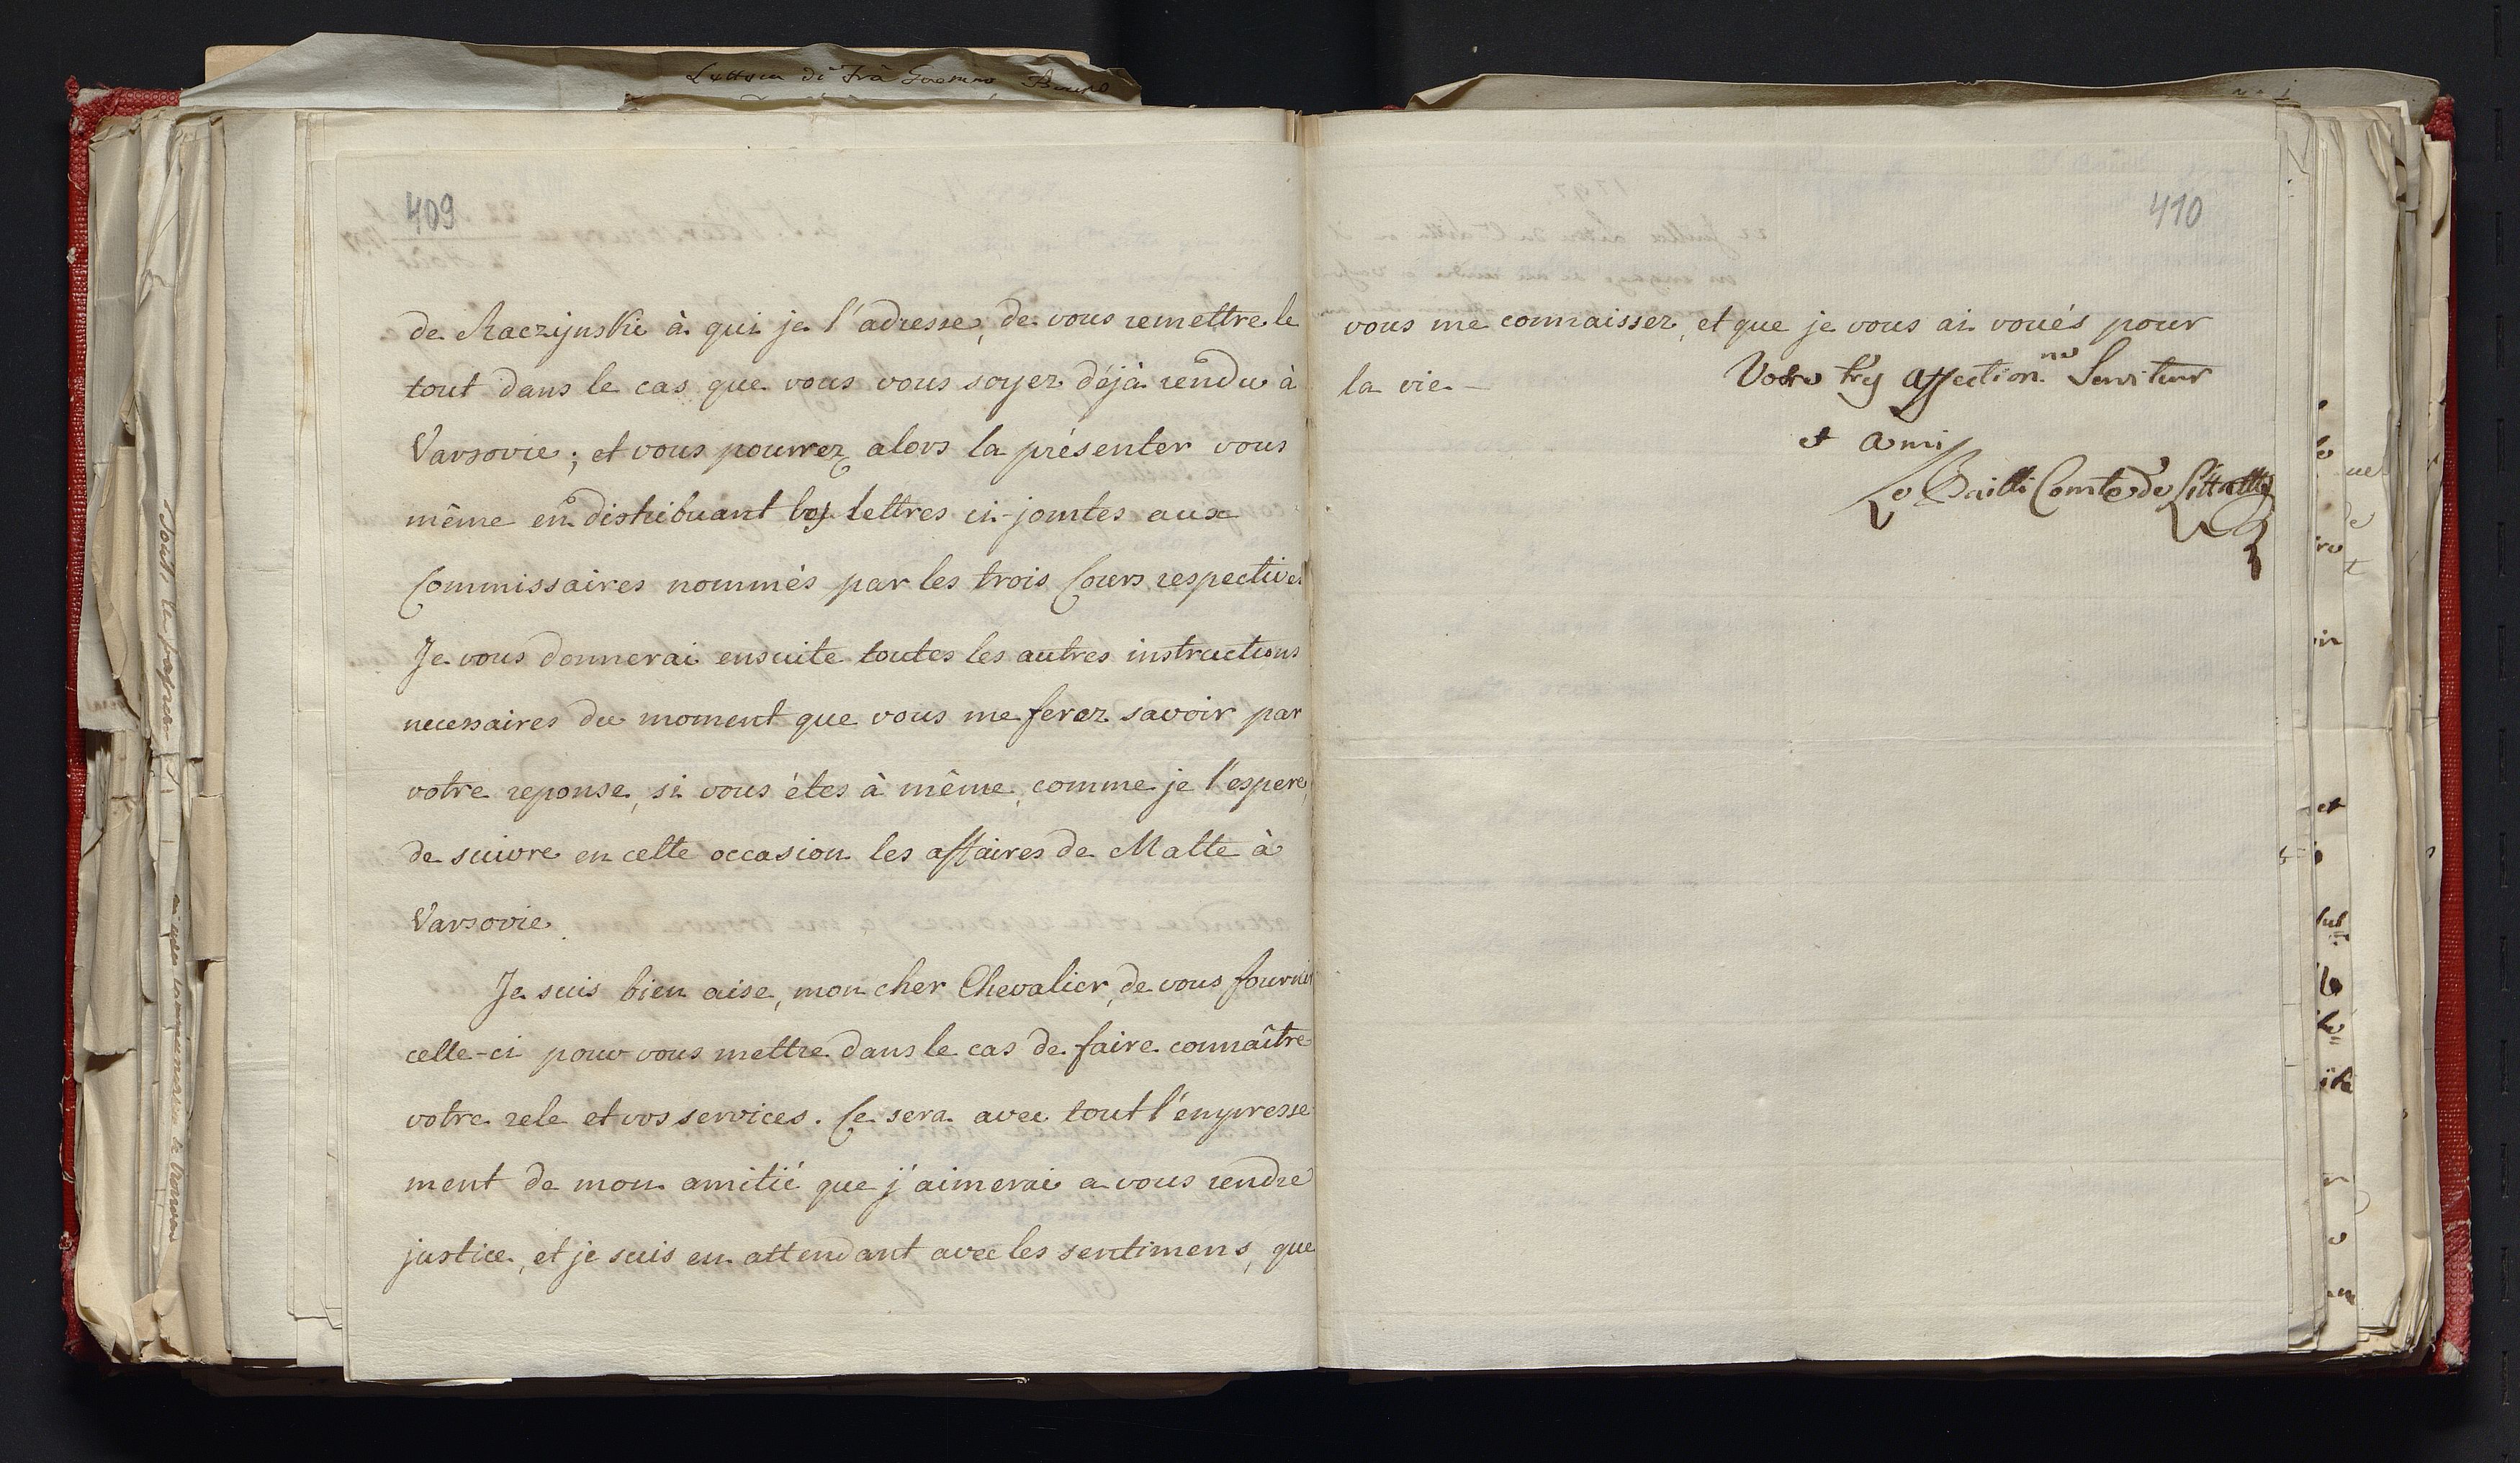 409
de Raczijnski à qui je l'adresse, de vous remettre le
tout dans le cas que vous vous soyez déjà rendu à
Varsovie; et vous pourrez alors la présenter vous
même en distribuant les lettres ci-jointes aux
Commissaires nommés par les trois Cours respectives
Je vous donnerai ensuite toutes les autres instructions
necessaires du moment que vous me ferez savoir par
votre reponse, si vous étes à même, comme je l'espere,
de suivre en cette occasion les affaires de Malte à
Varsovie.
Je suis bien aise, mon cher Chevalier, de vous fournir
celle-ci pour vous mettre dans le cas de faire connaître
votre zele et vos services. Ce sera avec tout l'empresse
ment de mon amitié que j'aimerai a vous rendre
justice, et je suis en attendant avec les sentimens, que
410
vous me connaissez, et que je vous ai voués pour
la vie —
Votre tres affectionné Serviteur
et Ami
Le Bailli Comte de Litta